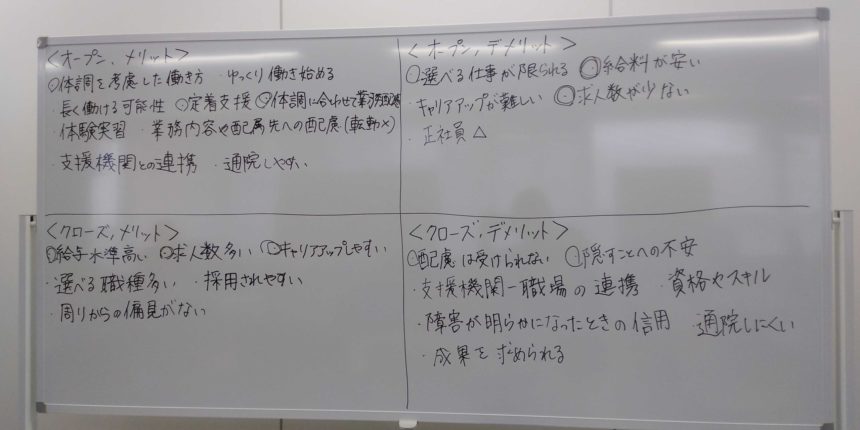 ＜オープン，メリット＞
・体調を考慮した働き方 ・ゆっくり働き始める
・長く働ける可能性 ・定着支援 ・体調に合わせて業務配慮
・体験実習 ・業務内容や配属先への配慮（転勤×）
・支援機関との連携 ・通院しやすい
＜オープン，デメリット＞
・選べる仕事が限られる ・給料が安い
・キャリアアップが難しい ・求人数が少ない
・正社員△
＜クローズ，メリット＞
・給与水準高い ・求人数多い ・キャリアアップしやすい
・選べる職種多い ・採用されやすい
・周りからの偏見がない
＜クローズ，デメリット＞
・配慮は受けられない ・隠すことへの不安
・支援機関ー職場の連携 ・資格やスキル
・障害が明らかになったときの信用 ・通院しにくい
・成果を求められる